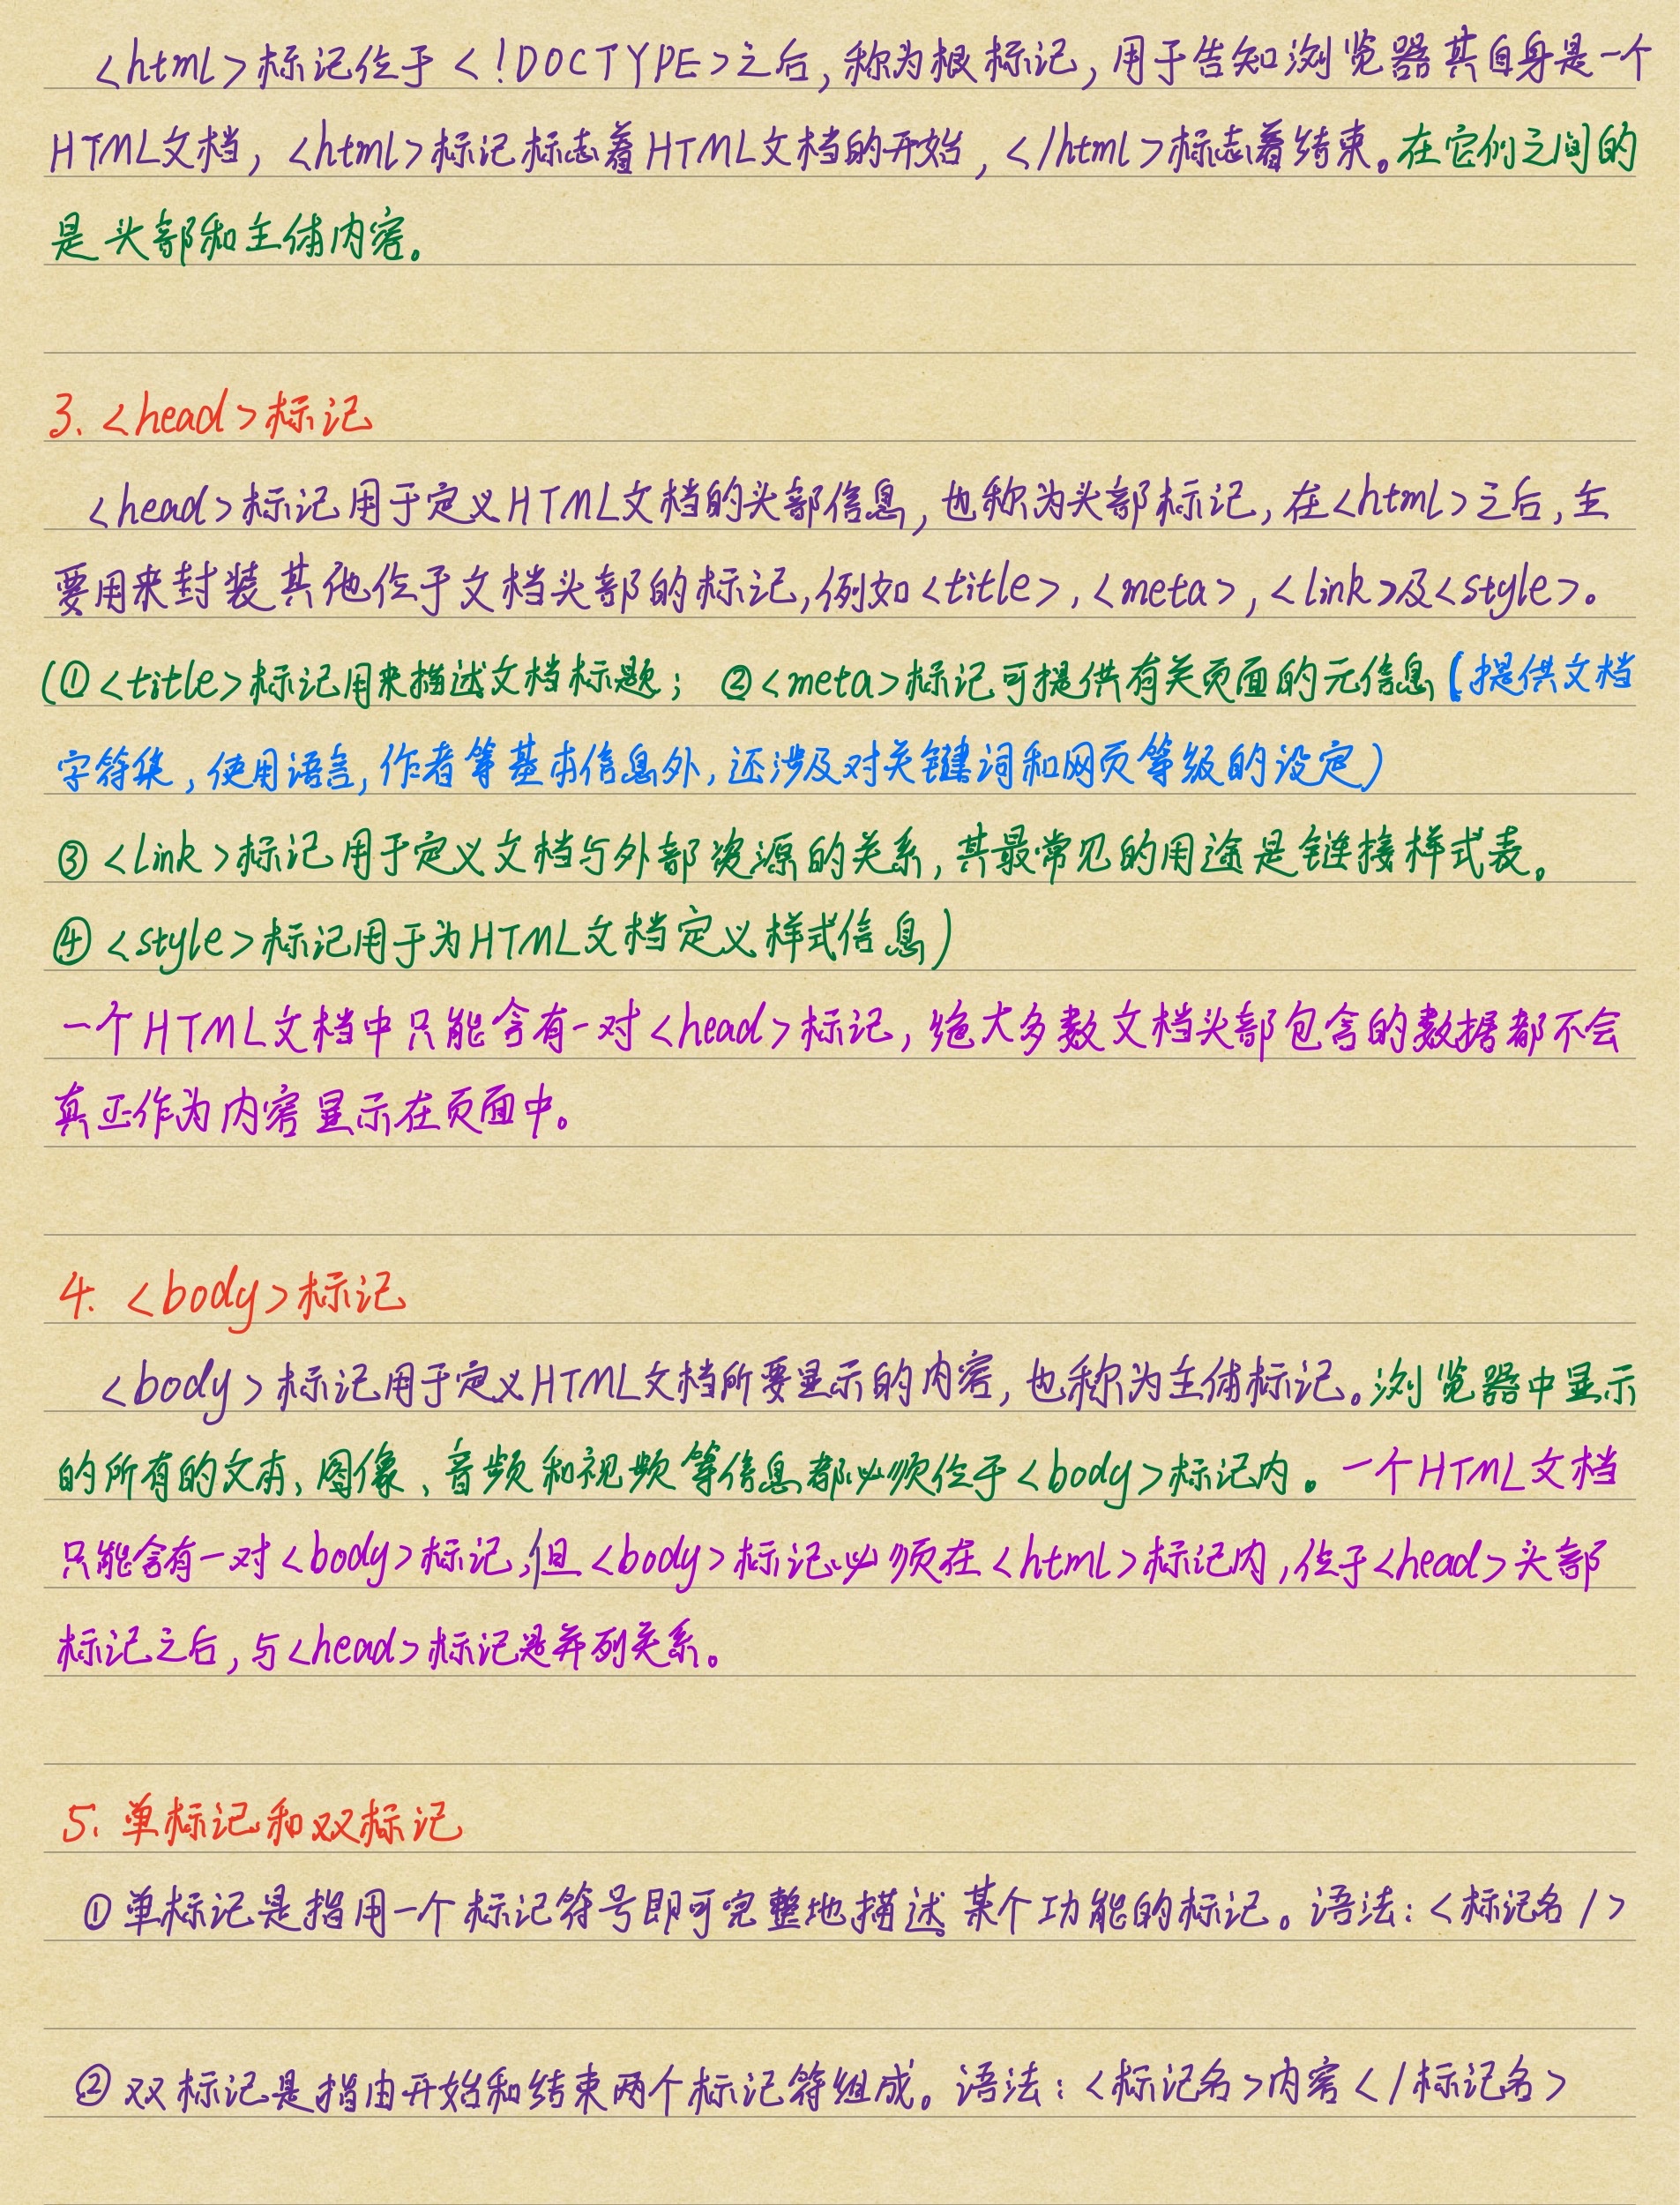 <html>标记位于<!DOCTYPE>之后,称为根标记,用于告知浏览器其自身是一个
HTML文档,<html>标记标志着HTML文档的开始,</html>标志着结束。在它们之间的
是头部和主体内容。
3.<head>标记
<head>标记用于定义HTML文档的头部信息,也称为头部标记,在<html>之后,主
要用来封装其他位于文档头部的标记,例如<title>,<meta>,<link>及<style>。
(①<title>标记用来描述文档标题; ②<meta>标记可提供有关页面的元信息(提供文档
字符集,使用语言,作者等基本信息外,还涉及对关键词和网页等级的设定)
③<link>标记用于定义文档与外部资源的关系,其最常见的用途是链接样式表。
④<style>标记用于为HTML文档定义样式信息)
一个HTML文档中只能含有一对<head>标记,绝大多数文档头部包含的数据都不会
真正作为内容显示在页面中。
4.<body>标记
<body>标记用于定义HTML文档所要显示的内容,也称为主体标记。浏览器中显示
的所有的文本、图像、音频和视频等信息都必须位于<body>标记内。一个HTML文档
只能含有一对<body>标记,但<body>标记必须在<html>标记内,位于<head>头部
标记之后,与<head>标记是并列关系。
5.单标记和双标记
①单标记是指用一个标记符号即可完整地描述某个功能的标记。语法:<标记名/>
②双标记是指由开始和结束两个标记符组成。语法:<标记名>内容</标记名>